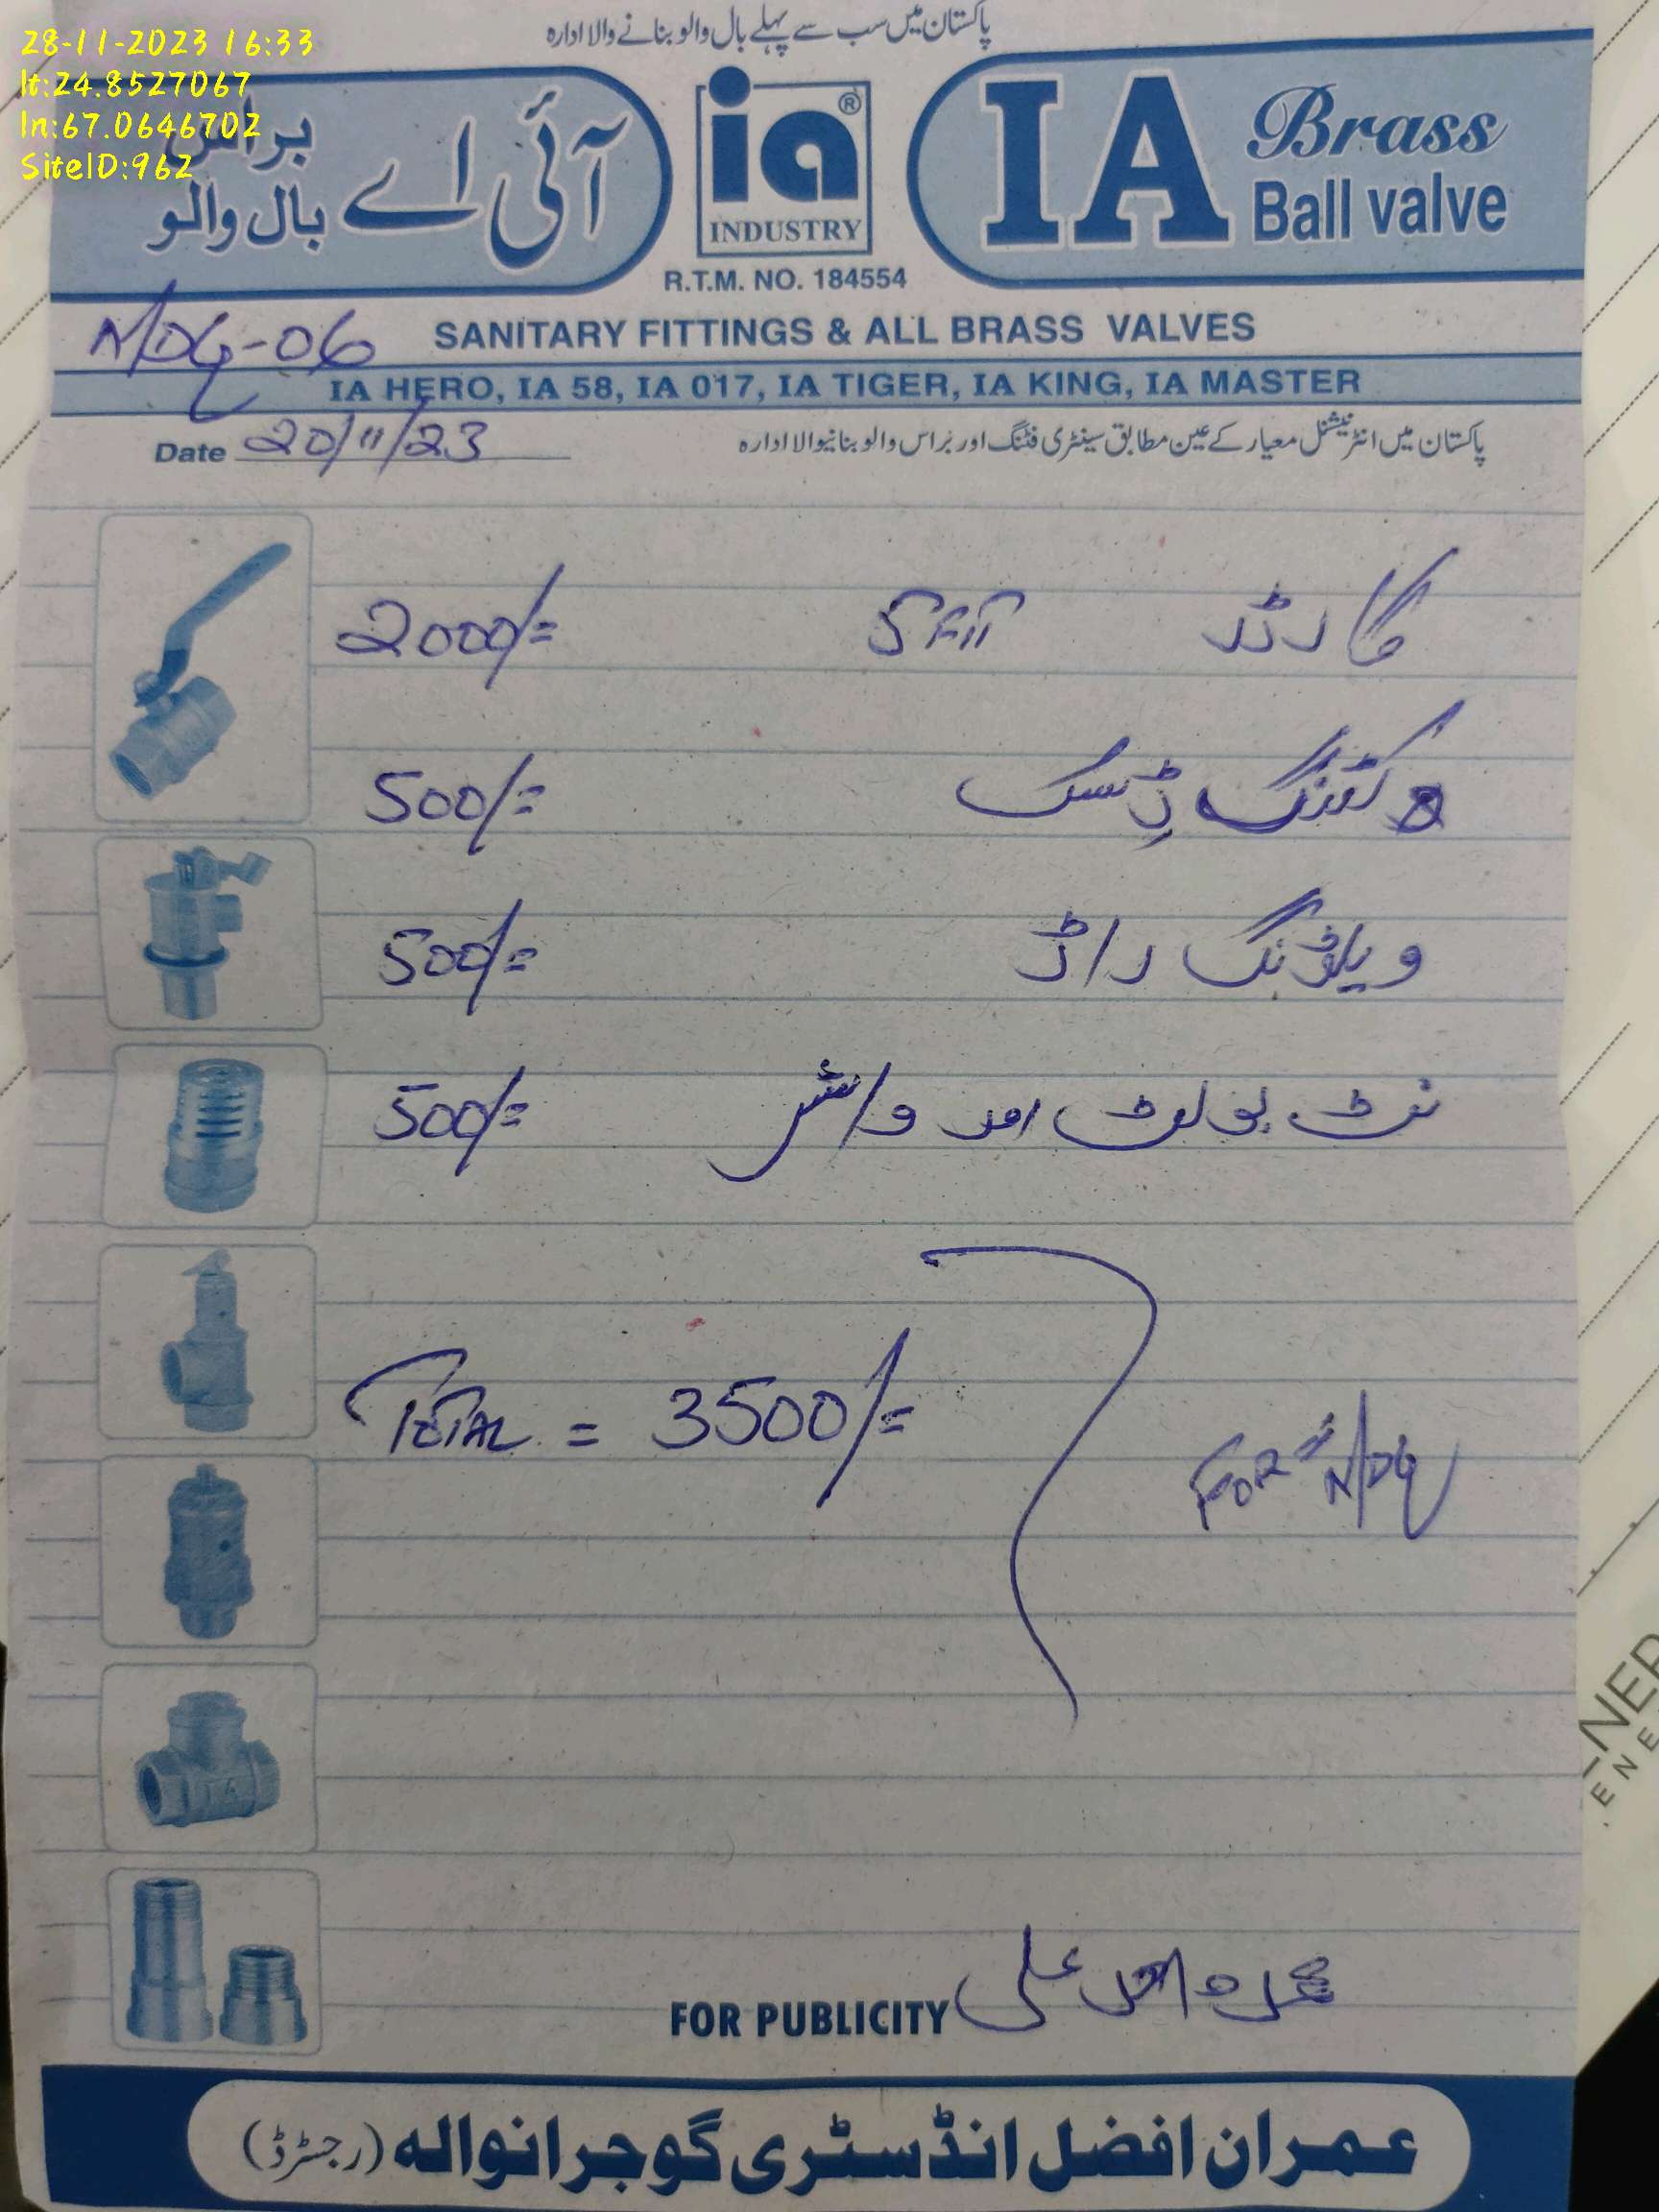 28-11-2023 16:33
lt:24.8527067
ln:67.0646702
SiteID:962
پاکستان میں سب سے پہلے بال والو بنانے والا ادارہ
آئی اے براس بال والو
ia®
INDUSTRY
R.T.M. NO. 184554
IA Brass Ball valve
MDG-06
SANITARY FITTINGS & ALL BRASS VALVES
IA HERO, IA 58, IA 017, IA TIGER, IA KING, IA MASTER
Date 20/11/23
پاکستان میں انٹرنیشنل معیار کے عین مطابق سینٹری فٹنگ اور براس والو بنانیوالا ادارہ
2000/=
کٹنگ ڈسک 500/=
ویلڈنگ راڈ 500/=
نٹ بولٹ اور واشر 500/=
TOTAL = 3500/=
FOR MDG
FOR PUBLICITY علی
عمران افضل انڈسٹری گوجرانوالہ (رجسٹرڈ)
ENER
ENE